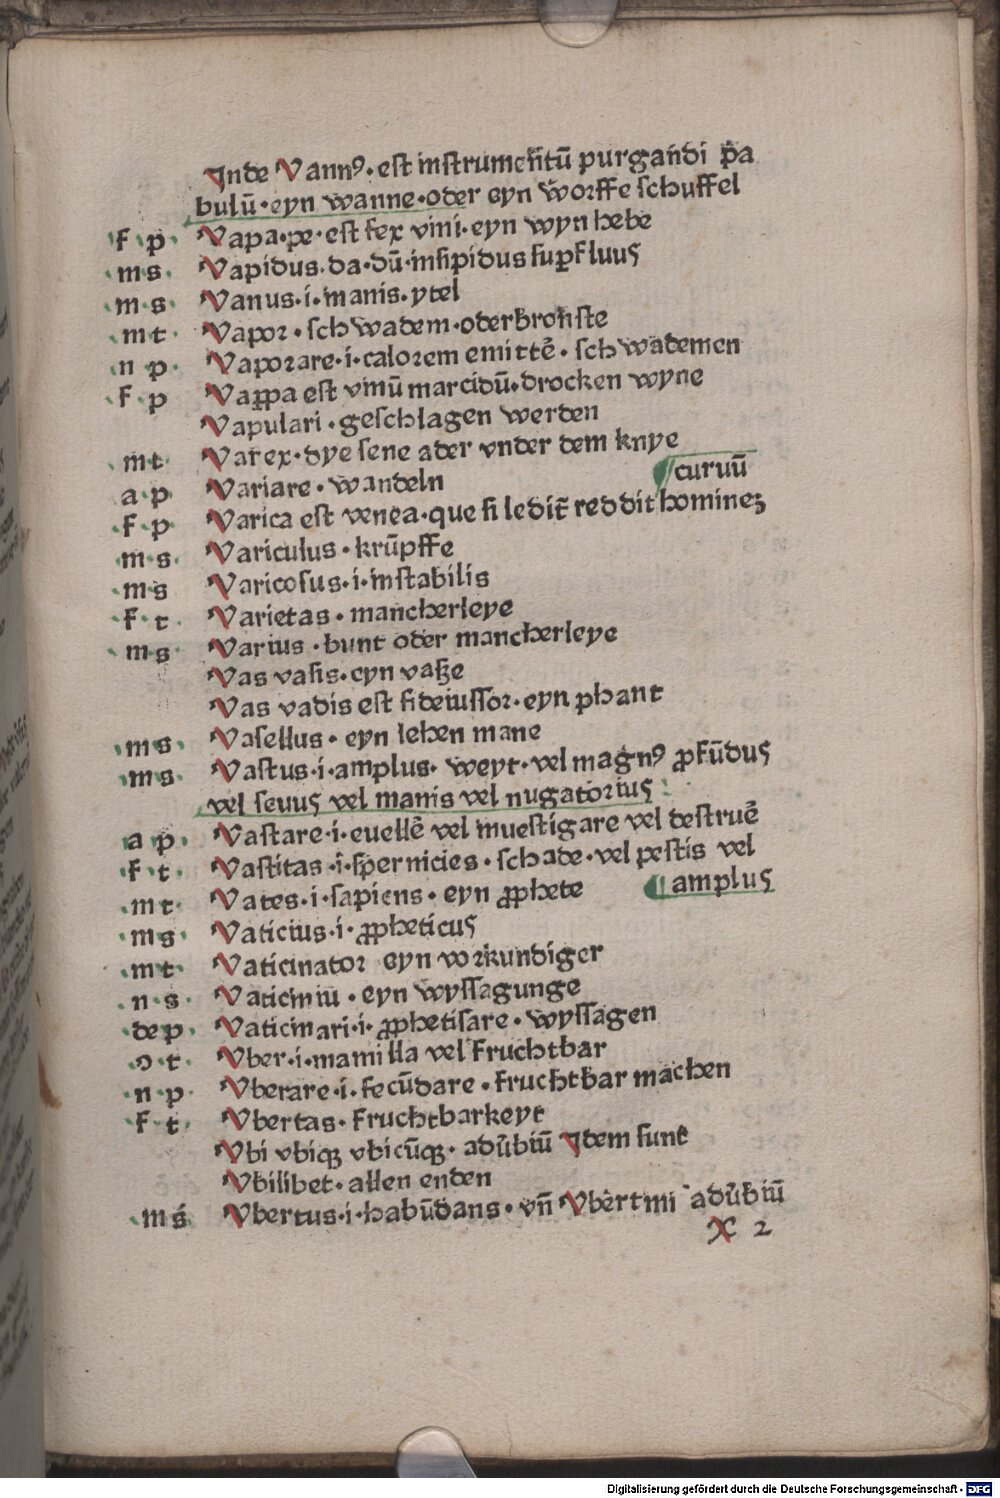 Jnde Vannꝰ·est instrumentū purgandi p̄a
bulū·eyn wanne·oder eyn worffe schuffel
f p Vapa·pe·est fex vini·eyn wyn hebe
m s Vapidus·da·dū·insipidus suꝑfluus
m s Vanus·i·inanis·ytel
m t Vapor·schwadem·oder bronste
n p Vaporare·i·calorem emittē·schwademen
f p Vaꝑpa est vinū marcidū·drocken wyne
Vapulari·geschlagen werden
m t Varex·dye sene ader vnder dem knye
a p Variare·wandeln ¶ curuū
f p Varica est venea·que si ledit̄ reddit hominez
m s Variculus·krūpffe
m s Varicosus·i·instabilis
f t Varietas·mancherleye
m s Varius·bunt oder mancherleye
Vas vasis·eyn vaße
Vas vadis est fideiussor·eyn phant
m s Vasellus·eyn lehen mane
m s Vastus·i·amplus·weyt·vel magnꝰ ꝓfūdus
vel seuus vel inanis vel nugatorius
a p Vastare·i·euellē vel inuestigare vel destruē
f t Vastitas·i·sꝑnicies·schade·vel pestis vel
m t Vates·i·sapiens·eyn ꝓphete ¶ amplus
m s Vaticius·i·ꝓpheticus
m t Vaticinator eyn vorkundiger
n s Vaticiniu·eyn wyssagunge
de p Vaticinari·i·ꝓphetisare·wyssagen
ↄ t Vber·i·mamilla vel fruchtbar
n p Vberare·i·fecūdare·fruchtbar machen
f t Vbertas·fruchtbarkeyt
Vbi vbiqꝫ vbicūqꝫ·adūbiū Jdem sunt
Vbilibet·allen enden
m s Vbertus·i·habūdans·vn̄ Vbertini adūbiū
X 2
Digitalisierung gefördert durch die Deutsche Forschungsgemeinschaft - DFG